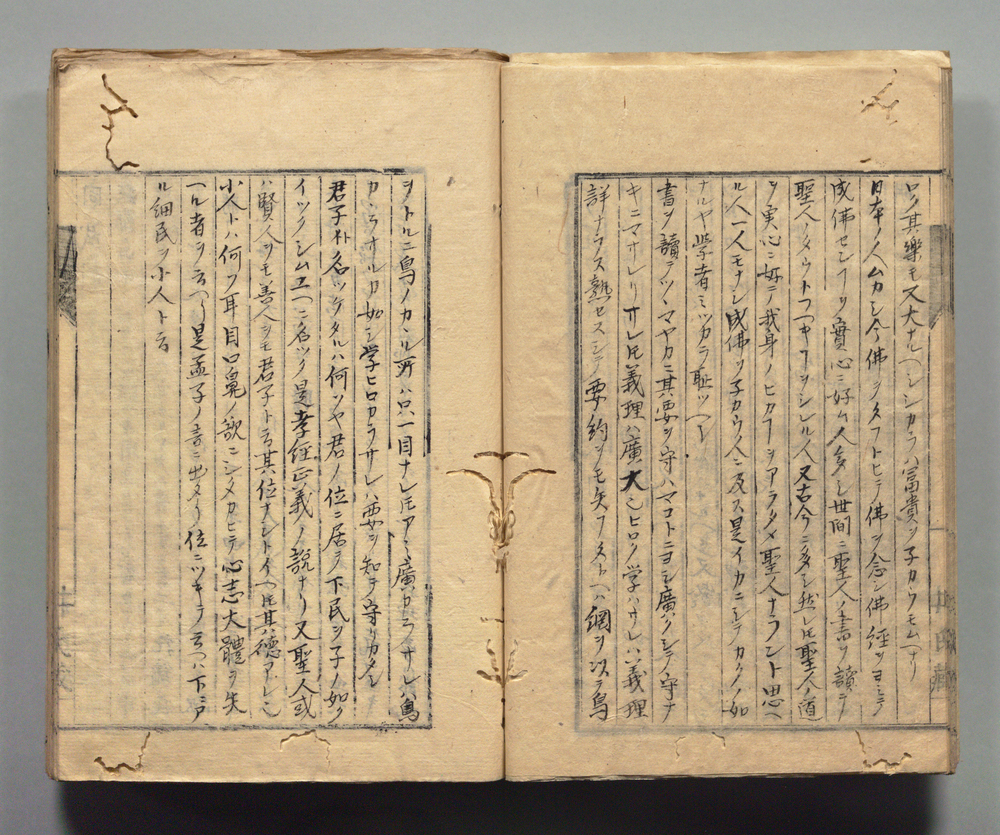 ロク其樂モ又大ナヒヘシシカラハ冨貴ヲ子カウモムヘナリ
日本ノ人ムカシ今佛ヲタフトヒテ佛ヲ念シ佛經ヲヨミテ
成佛センヿヲ實心ニ好ム人多シ世間ニ聖人ノ書ヲ讀テ
聖人ノタウトフヘキヿヲシレル人又古今ニ多シ然レ𪜈聖人ノ道
ヲ実心ニ好テ我身ノヒカヿヲアラタメ聖人ナラント思ヘ
ル人一人モナシ成佛ヲ子カウ人ニ及ス是イカニシテカクノ如
ナルヤ学者ミツカラ恥ツヘシ
書ヲ讀テツヽマヤカニ其要ヲ守ハマコトニヨシ廣クシテ守ナ
キニマサレリサレ𪜈義理ハ廣大也ヒロク学ハサレハ義理
詳ナラス熟セスシテ要約ヲモ失フタトヘハ網ヲ以テ鳥
ヲトルニ鳥ノカヽル所ハ只一目ナレ𪜈アミ廣カラサレハ鳥
カヽラサルカ如シ学ヒロカラサレハ要ヲ知テ守リカタシ
君子ト名ツケタルハ何ソヤ君ノ位ニ居テ下民ヲ子ノ如ク
イツクシムユヘニ名ツク是孝經正義ノ說ナリ又聖人或
ハ賢人ヲモ善人ヲモ君子ト云其位ナシトイヘ𪜈其德アレハ也
小人トハ何ソ耳目口鼻ノ欲ニシタカヒテ心志大體ヲ失
ヘル者ヲ云ヘリ是孟子ノ言ニ出タリ位ニツキテ云ヘハ下ニア
ル細民ヲ小人ト云